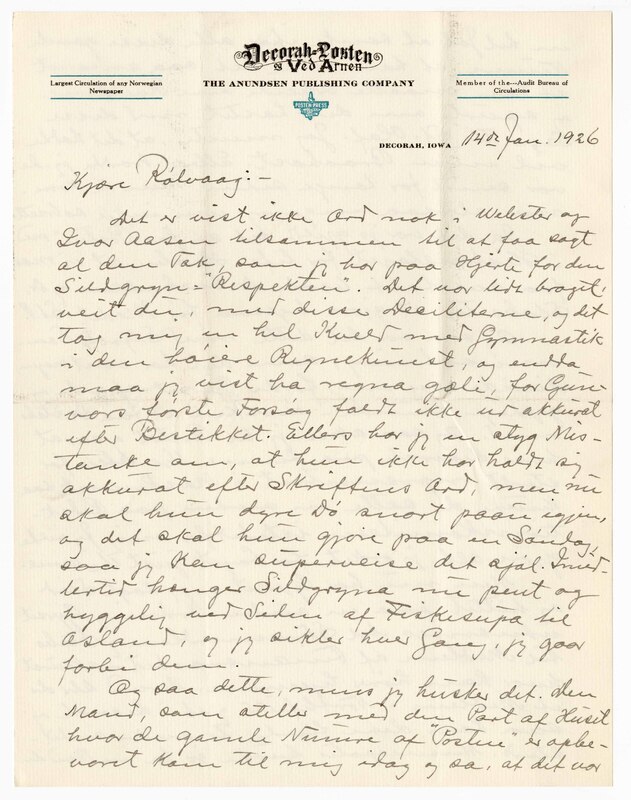 Decorah-Posten
og Ved Arnen
Largest Circulation of any Norwegian
Newspaper
THE ANUNDSEN PUBLISHING COMPANY
Member of the---Audit Bureau of
Circulations
POSTEN PRESS
DECORAH, IOWA 14de Jan. 1926
Kjære Rølvaag:-
Det er vist ikke Ord nok i Webster og
Ivar Aasen tilsammen til at faa sagt
al den Tak, som jeg har paa Hjerte for den
Sildgryn-"Respekten". Det var lidt braget,
veit du, med disse Deciliterne, og det
tog mig en hel Kveld med Gymnastik
i den høiere Regnekunst, og endda
maa jeg vist ha regna gæli, for Gun-
vors første Forsøg faldt ikke ud akkurat
efter Bestikket. Ellers har jeg en styg Mis-
tanke om, at hun ikke har holdt sig
akkurat efter Skriftens Ord, men nu
skal hun dyre Dö snart paan igjen,
og det skal hun gjøre paa en Søndag,
saa jeg kan superveise det sjøl. Imid-
lertid hænger Sildgryna nu pent og
hyggelig ved Siden af Fiskesupa til
Åsland, og jeg sikler hver Gang, jeg gaar
forbi dem.
Og saa dette, mens jeg husker det. Den
Mand, som steller med den Part af Huset
hvor de gamle Numre af "Posten" er opbe-
varet kom til mig idag og sa, at det var